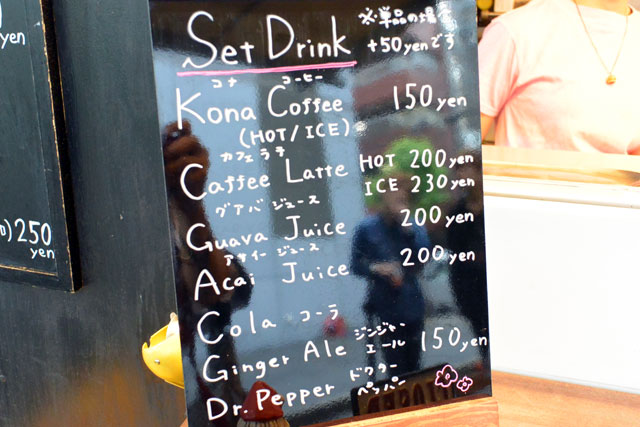 yen
Set Drink
※単品の場合
+50yenです
コナ コーヒー
Kona Coffee 150yen
(HOT/ICE)
カフェラテ
Caffee Latte HOT 200yen
ICE 230yen
グアバジュース
Guava Juice 200yen
アサイージュース
Acai Juice 200yen
Cola コーラ
Ginger Ale ジンジャー
エール 150yen
Dr. Pepper ドクター
ペッパー
250
yen